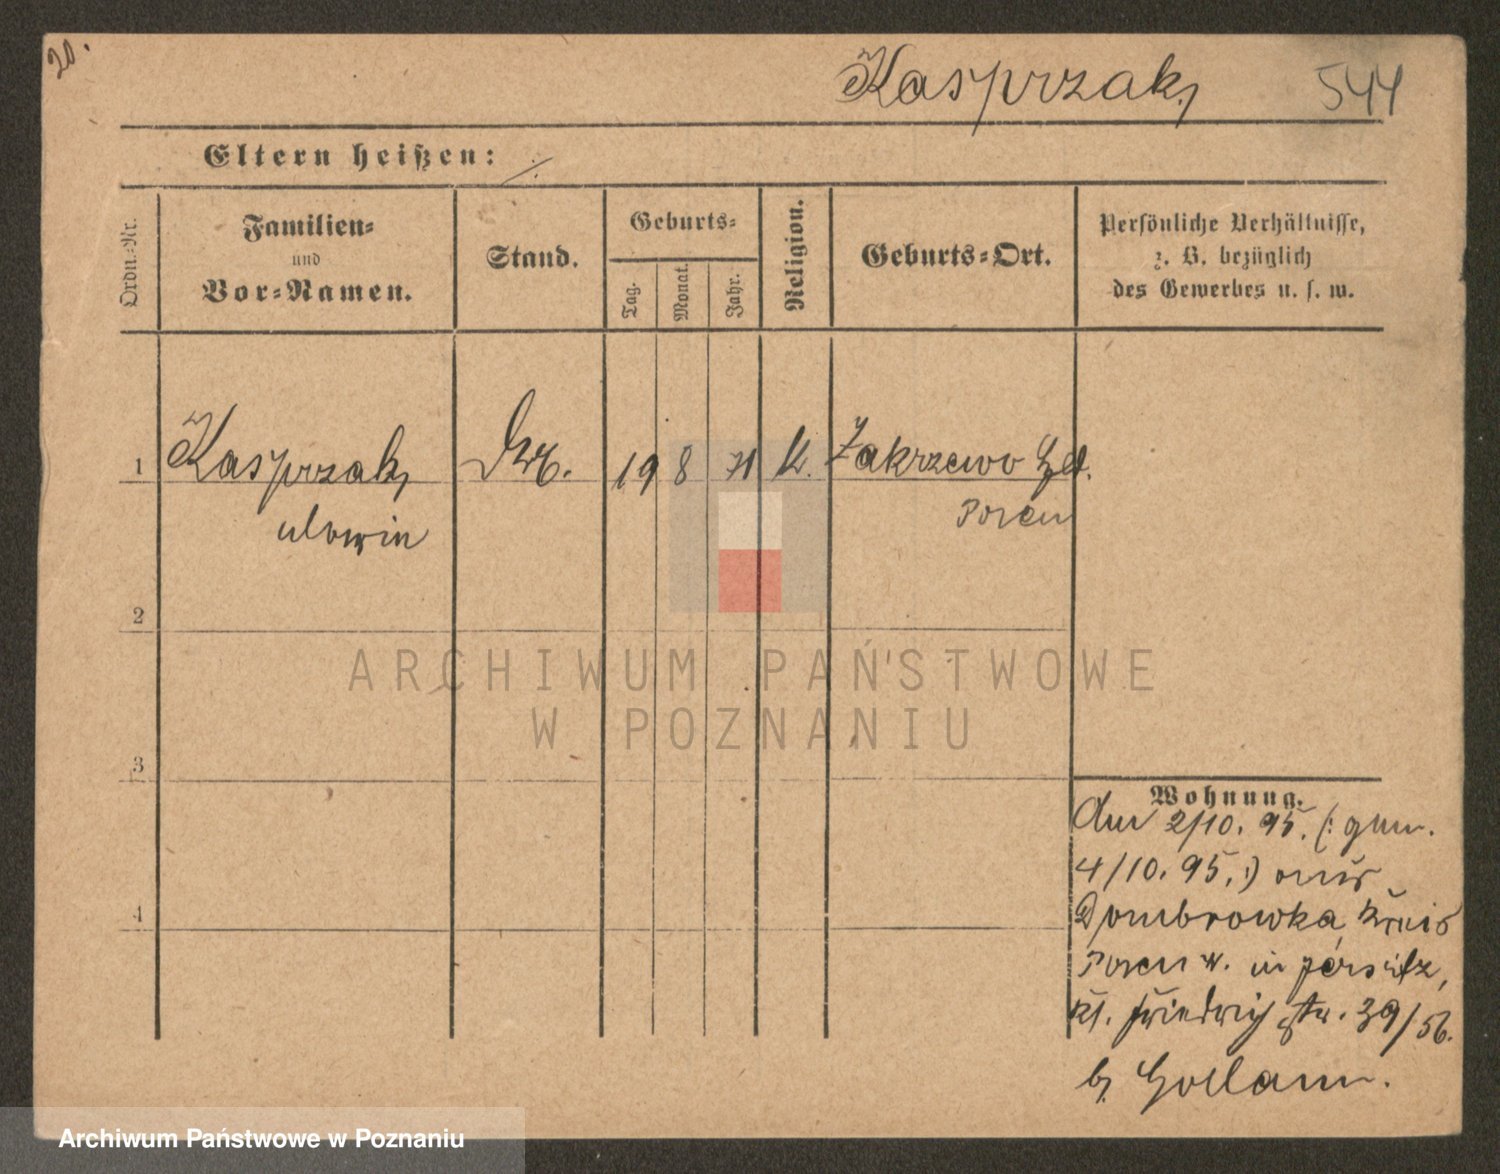 20.
Kasprzak,
544
Eltern heißen:
Ordn.-Nr.
Familien-
und
Vor-Namen.
Stand.
Geburts-
Tag.
Monat.
Jahr.
Religion.
Geburts-Ort.
Persönliche Verhältnisse,
z. B. bezüglich
des Gewerbes u. s. w.
1
Kasprzak,
19 8 71 K. Zakrzewo
Posen
2
3
4
Wohnung.
2/10. 95. (: gem.
4/10. 95. :) aus
Dombrowka, Kreis
Posen W. in Jersitz,
Kl. Friedrich Str. 39/56.
b.
ARCHIWUM PAŃSTWOWE
W POZNANIU
Archiwum Państwowe w Poznaniu